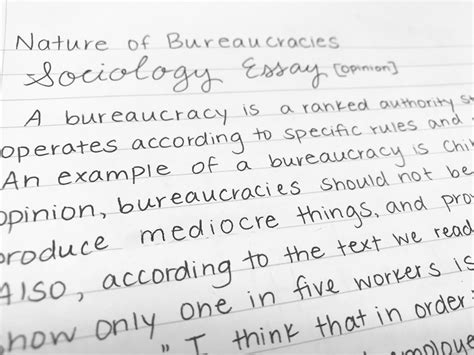 Nature of Bureaucracies
Sociology Essay [opinion]
A bureaucracy is a ranked authority
operates according to specific rules and
An example of a bureaucracy is
opinion, bureaucracies should not be
produce mediocre things, and
Also, according to the text we read
how only one in five workers is
" I think that in order